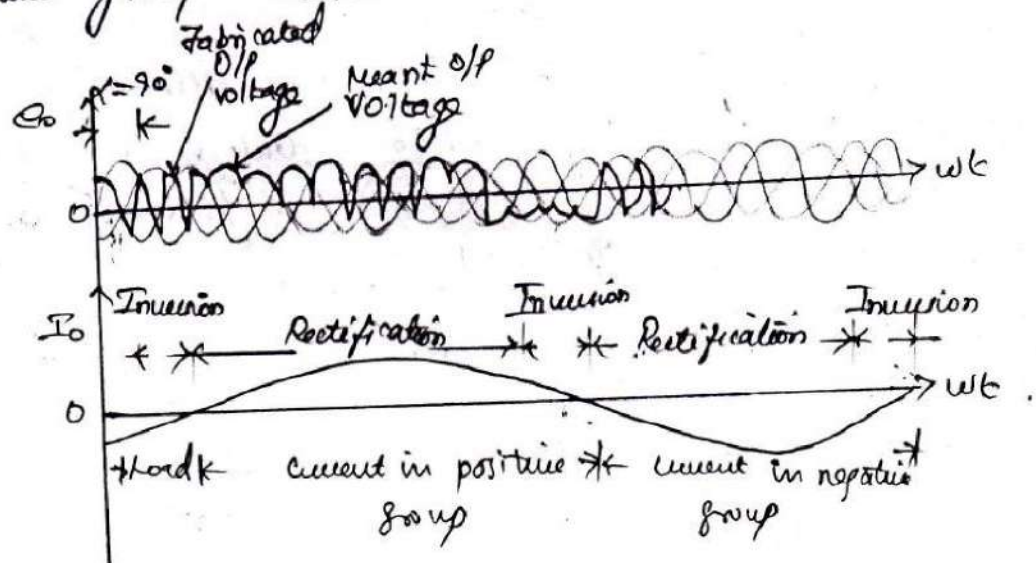 Fabricated
O/P
voltage
Meant O/P
VOltage
α=90°
e₀
0
ωt
Inversion
Rectification
Inversion
Rectification
Inversion
I₀
0
ωt
Load
current in positive
group
current in negative
group